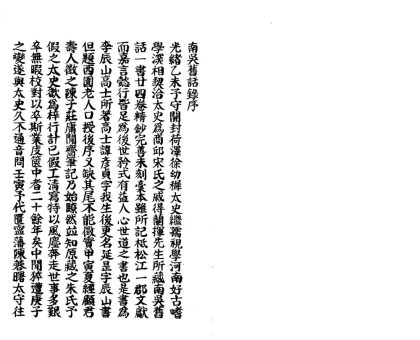 南吳舊話錄序
光緒乙未予守開封荷澤徐幼穉太史繼孺視學河南好古嗜
學深相契洽太史爲商邱宋氏之戚得蘭揮先生所藏南吳舊
話一書廿四卷精鈔完善未刻臺本雖所記祗松江一郡文獻
而嘉言懿行皆足爲後世矜式有益人心世道之書也是書爲
李辰山高士所著高士諱彥貞字我生後更名延昰字辰山書
但題西園老人口授後序又缺其尾不能徵實甲寅夏經顧君
壽人徵之陳子莊庸閒齋筆記乃始瞭然並知原藏之朱氏予
假之太史歡爲梓行計已假工清寫特以風塵奔走世事多艱
卒無暇校對以卒斯業庋篋中者二十餘年矣中間猝遭庚子
之變遂與太史久不通音問壬寅予代匱甯藩陳蓉曙太守往